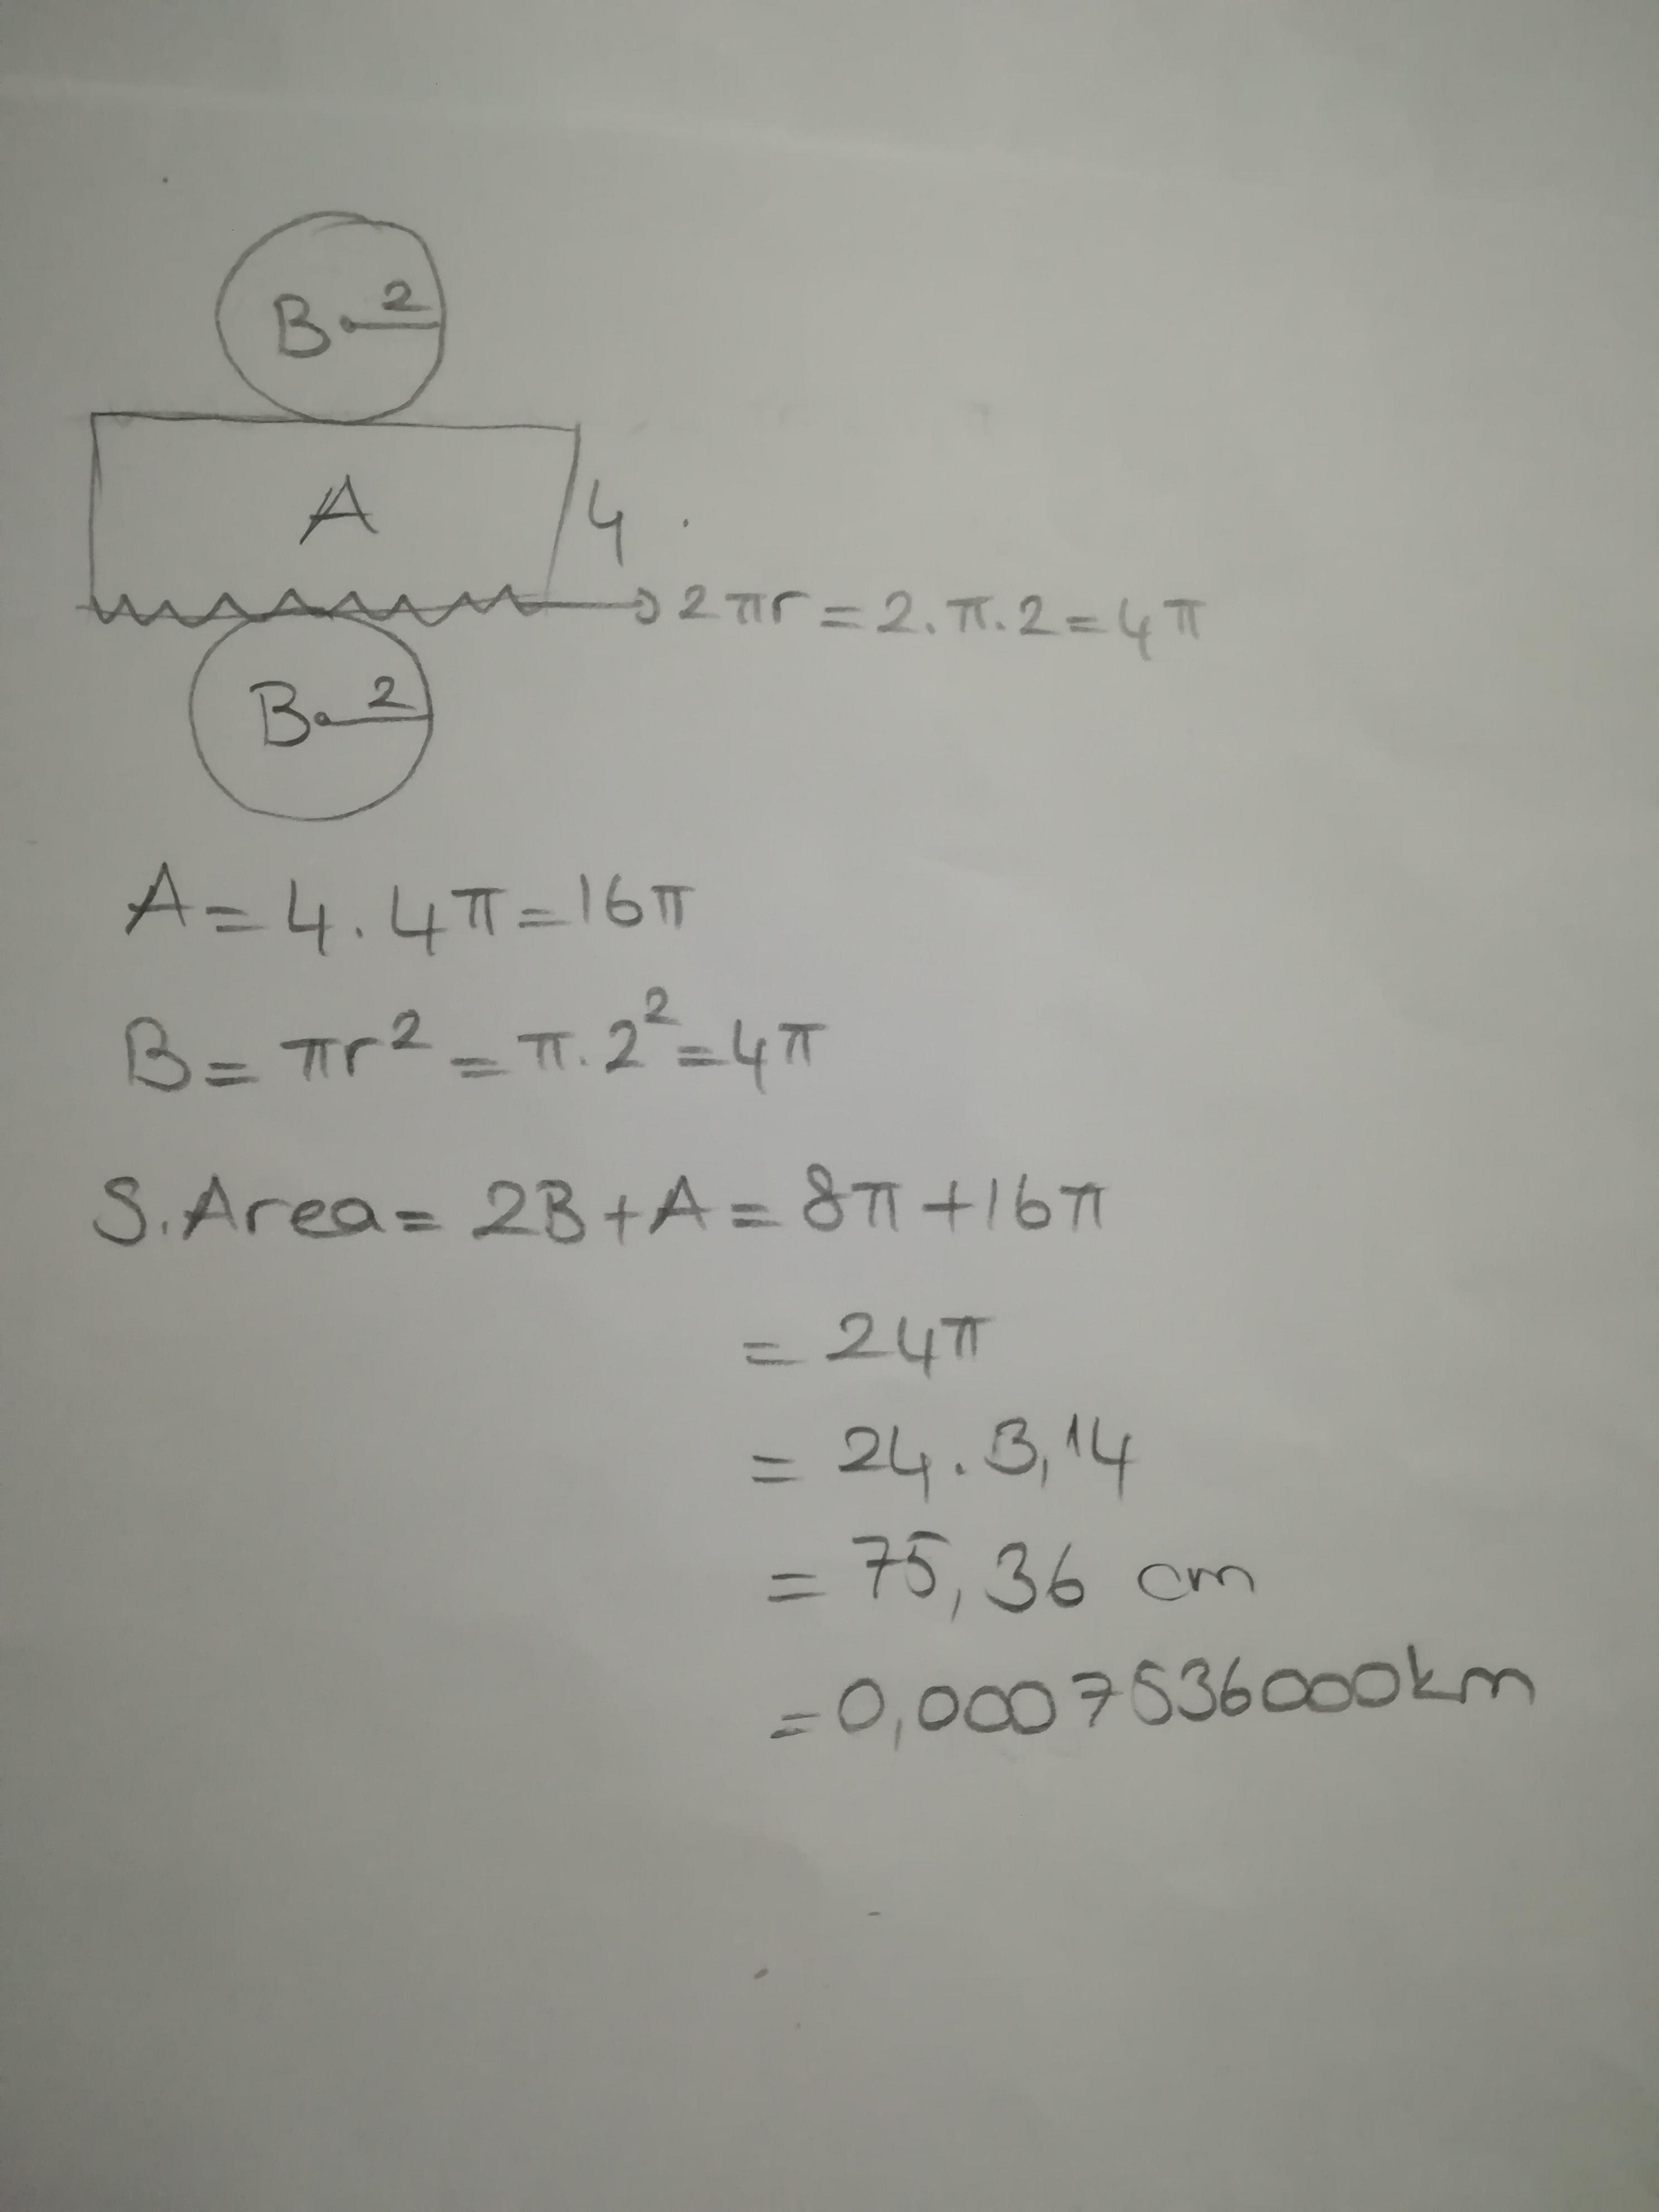 B 2
A
4
2πr = 2.π.2 = 4π
B 2
A = 4.4π = 16π
B = πr² = π.2² = 4π
S.Area = 2B + A = 8π + 16π
= 24π
= 24.3,14
= 75,36 cm
= 0,0007536000km